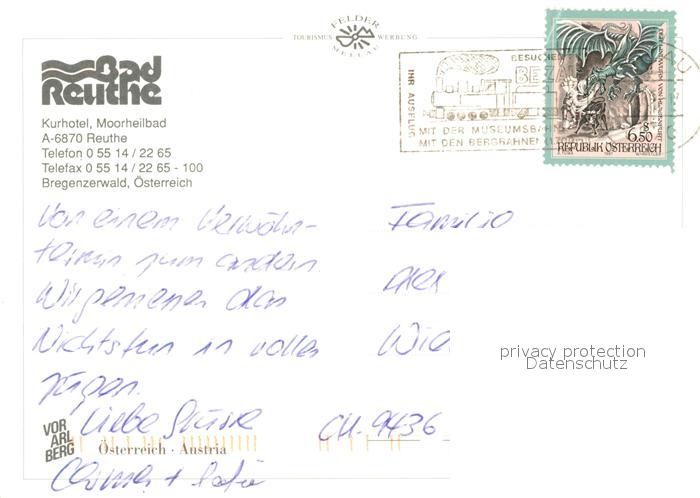 FELDER
TOURISMUS WERBUNG
MELLAU
Bad
Reuthe
Kurhotel, Moorheilbad
A-6870 Reuthe
Telefon 0 55 14 / 22 65
Telefax 0 55 14 / 22 65 - 100
Bregenzerwald, Österreich
BESUCHEN
BEZAU
IHR AUSFLUG
MIT DER MUSEUMSBAHN
MIT DEN BERGBAHNEN
6.50
REPUBLIK ÖSTERREICH
1997
Von einem Verwöhn-
termin zum andern.
Wir geniessen das
Nichtstun in vollen
Zügen.
Liebe Grüsse
Familie
Alex
CH-9436
privacy protection
Datenschutz
VOR
ARL
BERG
Österreich · Austria